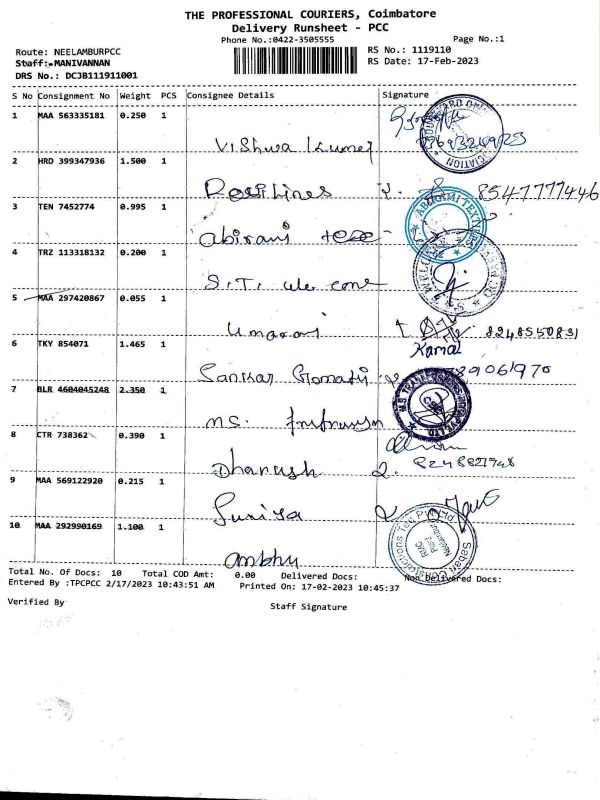 THE PROFESSIONAL COURIERS, Coimbatore
Delivery Runsheet - PCC
Phone No.:0422-3505555
Page No.:1
Route: NEELAMBURPCC
RS No.: 1119110
Staff:-MANIVANNAN
RS Date: 17-Feb-2023
DRS No.: DCJB111911001
S No Consignment No Weight PCS Consignee Details Signature
1 MAA 563335181 0.250 1
Vishwa Kumar
2 HRD 399347936 1.500 1
8547777446
3 TEN 7452774 0.995 1
Abirami tex
ABIRAMI TEXTILE
4 TRZ 113318132 0.200 1
S.T. Wel come
5 MAA 297420867 0.055 1
Umarani 8248550831
6 TKY 854071 1.465 1
Kamal
Sankar Gomathi
7 BLR 4604045248 2.350 1
MS.
8 CTR 738362 0.390 1
Dhanush
9 MAA 569122920 0.215 1
Suriya
10 MAA 292990169 1.100 1
RMC Plant Neelambur
anbhu
Total No. Of Docs: 10 Total COD Amt: 0.00 Delivered Docs: Non Delivered Docs:
Entered By :TPCPCC 2/17/2023 10:43:51 AM Printed On: 17-02-2023 10:45:37
Verified By
Staff Signature